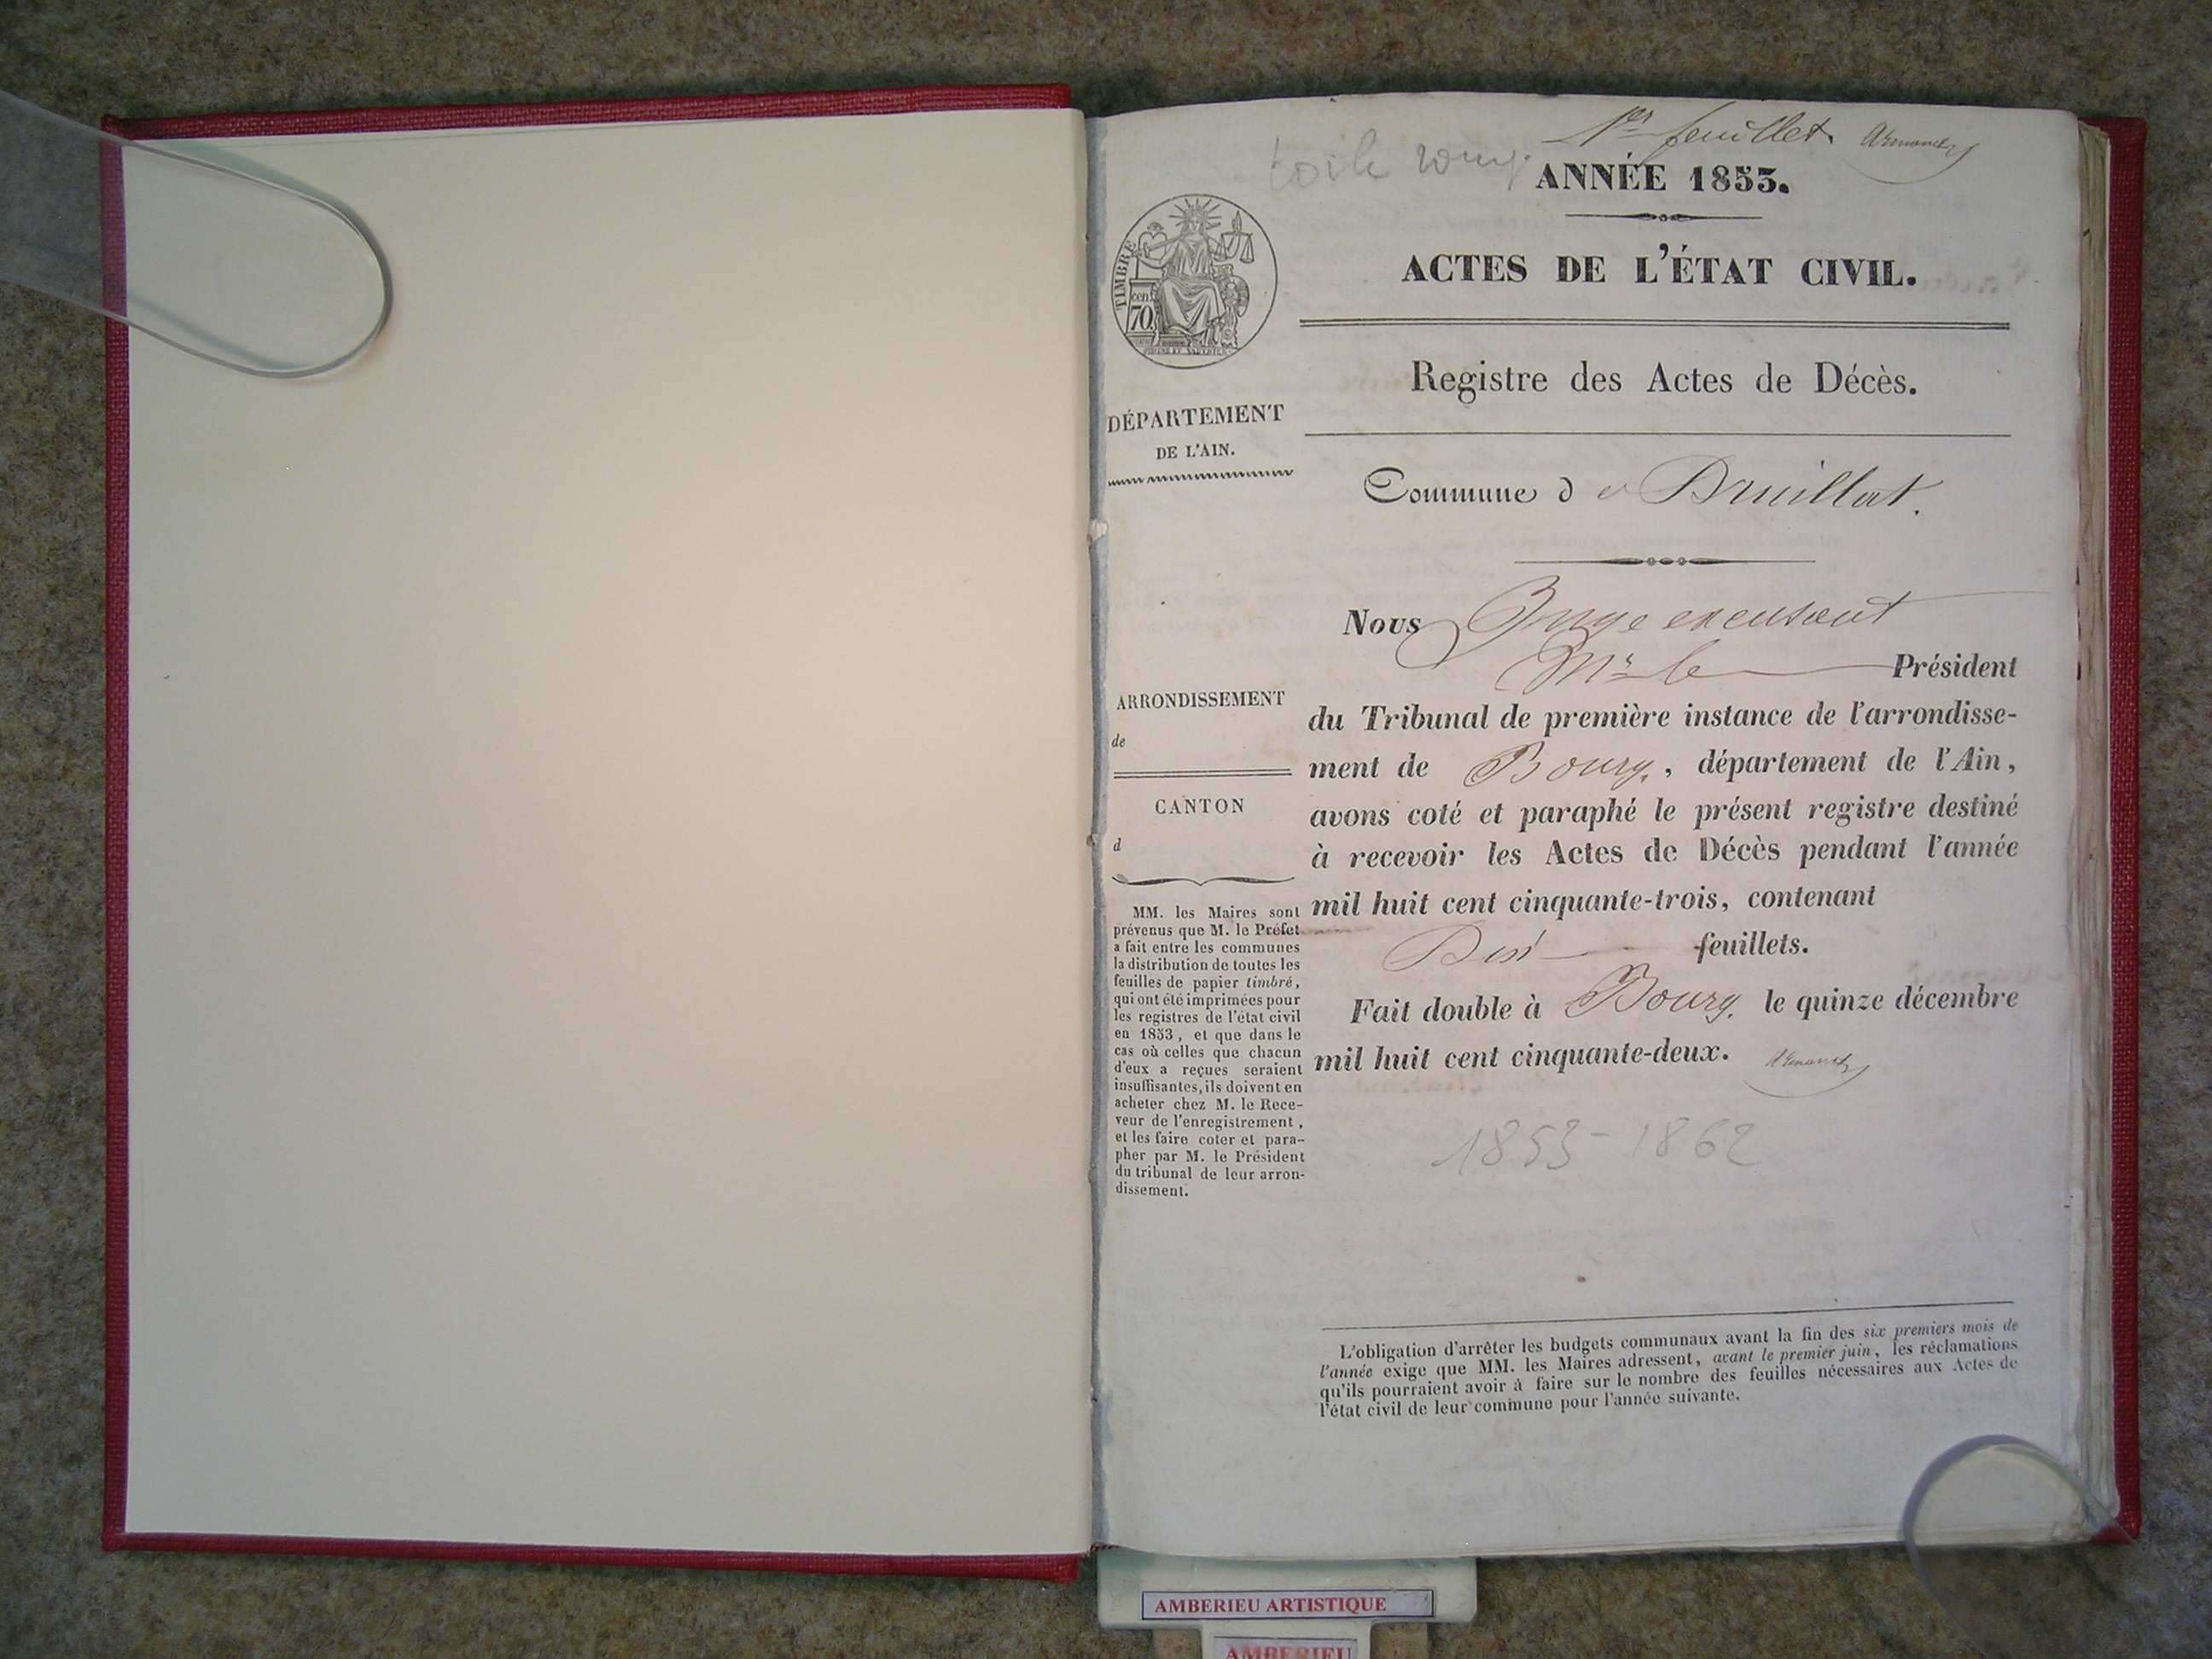 1er feuillet Armand
toile rouge
ANNÉE 1853.
ACTES DE L'ÉTAT CIVIL.
TIMBRE
cen.
70.
Registre des Actes de Décès.
DÉPARTEMENT
DE L'AIN.
Commune de Druillat.
Nous Juge excusant
Mr le Président
du Tribunal de première instance de l'arrondisse-
ment de Bourg, département de l'Ain,
avons coté et paraphé le présent registre destiné
à recevoir les Actes de Décès pendant l'année
mil huit cent cinquante-trois, contenant
Dix feuillets.
Fait double à Bourg, le quinze décembre
mil huit cent cinquante-deux. Armand
1853-1862
ARRONDISSEMENT
de
CANTON
d
MM. les Maires sont
prévenus que M. le Préfet
a fait entre les communes
la distribution de toutes les
feuilles de papier timbré,
qui ont été imprimées pour
les registres de l'état civil
en 1853, et que dans le
cas où celles que chacun
d'eux a reçues seraient
insuffisantes, ils doivent en
acheter chez M. le Rece-
veur de l'enregistrement,
et les faire coter et para-
pher par M. le Président
du tribunal de leur arron-
dissement.
L'obligation d'arrêter les budgets communaux avant la fin des six premiers mois de
l'année exige que MM. les Maires adressent, avant le premier juin, les réclamations
qu'ils pourraient avoir à faire sur le nombre des feuilles nécessaires aux Actes de
l'état civil de leur commune pour l'année suivante.
AMBERIEU ARTISTIQUE
AMBERIEU